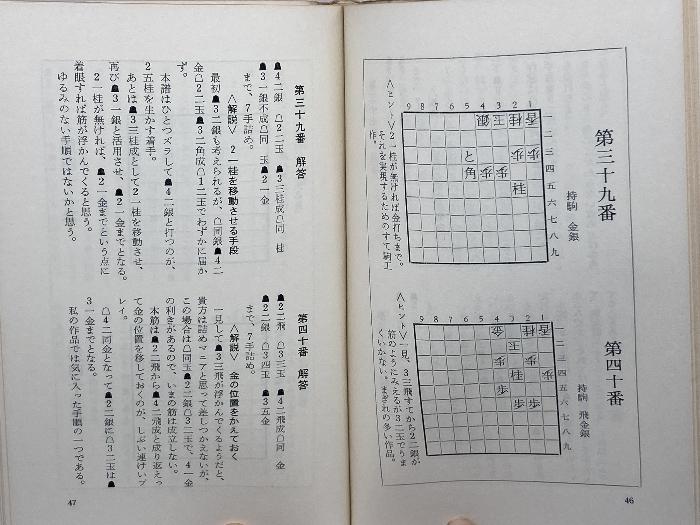 第三十九番
持駒　金銀
9 8 7 6 5 4 3 2 1
銀 玉 桂 香
一
二
歩 歩
三
と
角 歩 歩
四
桂
五
六
七
八
九
〈ヒント〉２一桂が無ければ金打ちまで。
それを実現するためのすて駒工
作。
第四十番
持駒　飛金銀
9 8 7 6 5 4 3 2 1
金 桂 香
一
玉
二
三
桂
四
歩
歩
五
歩 歩
六
七
八
九
〈ヒント〉一見、３三飛すてから２二銀が
筋のようにみえるが３二玉でうま
くいかない。まぎれの多い作品。
46
第三十九番　解答
☗４二銀　☖２二玉　☗３三桂成☖同　桂
☗３一銀不成☖同　玉☗２一金
まで、７手詰め。
〈解説〉　２一桂を移動させる手段
最初☗３二銀も考えられるが、☖同銀☗４二
金☖２二玉☗３二角成☖１二玉でわずかに届か
ず。
本譜はひとつズラして☗４二銀と打つのが、
２五桂を生かす着手。
あとは☗３三桂成として２一桂を移動させ、
再び☗３一銀と活用させ、☗２一金までとなる。
２一桂が無ければ、☗２一金までという点に
着眼すれば筋が浮かんでくると思う。
ゆるみのない手順ではないかと思う。
第四十番　解答
☗２二飛　☖３三玉　☗４二飛成☖同　金
☗２二銀　☖３四玉　☗３五金
まで、７手詰め。
〈解説〉　金の位置をかえておく
一見して☗３三飛が浮かんでくるようだと、
貴方は詰めマニアと思って差しつかえないが、
この場合は☖同玉☗２二銀☖３二玉で、４一金
の利きがあるので、いまの筋は成立しない。
本筋は☗２二飛から☗４二飛成と成り返え
て金の位置を移しておくのが、しぶい連けいプ
レイ。
☖４二同金となって☗２二銀に☖３二玉は☗
３一金までとなる。
私の作品では気に入った手順の一つである。
47